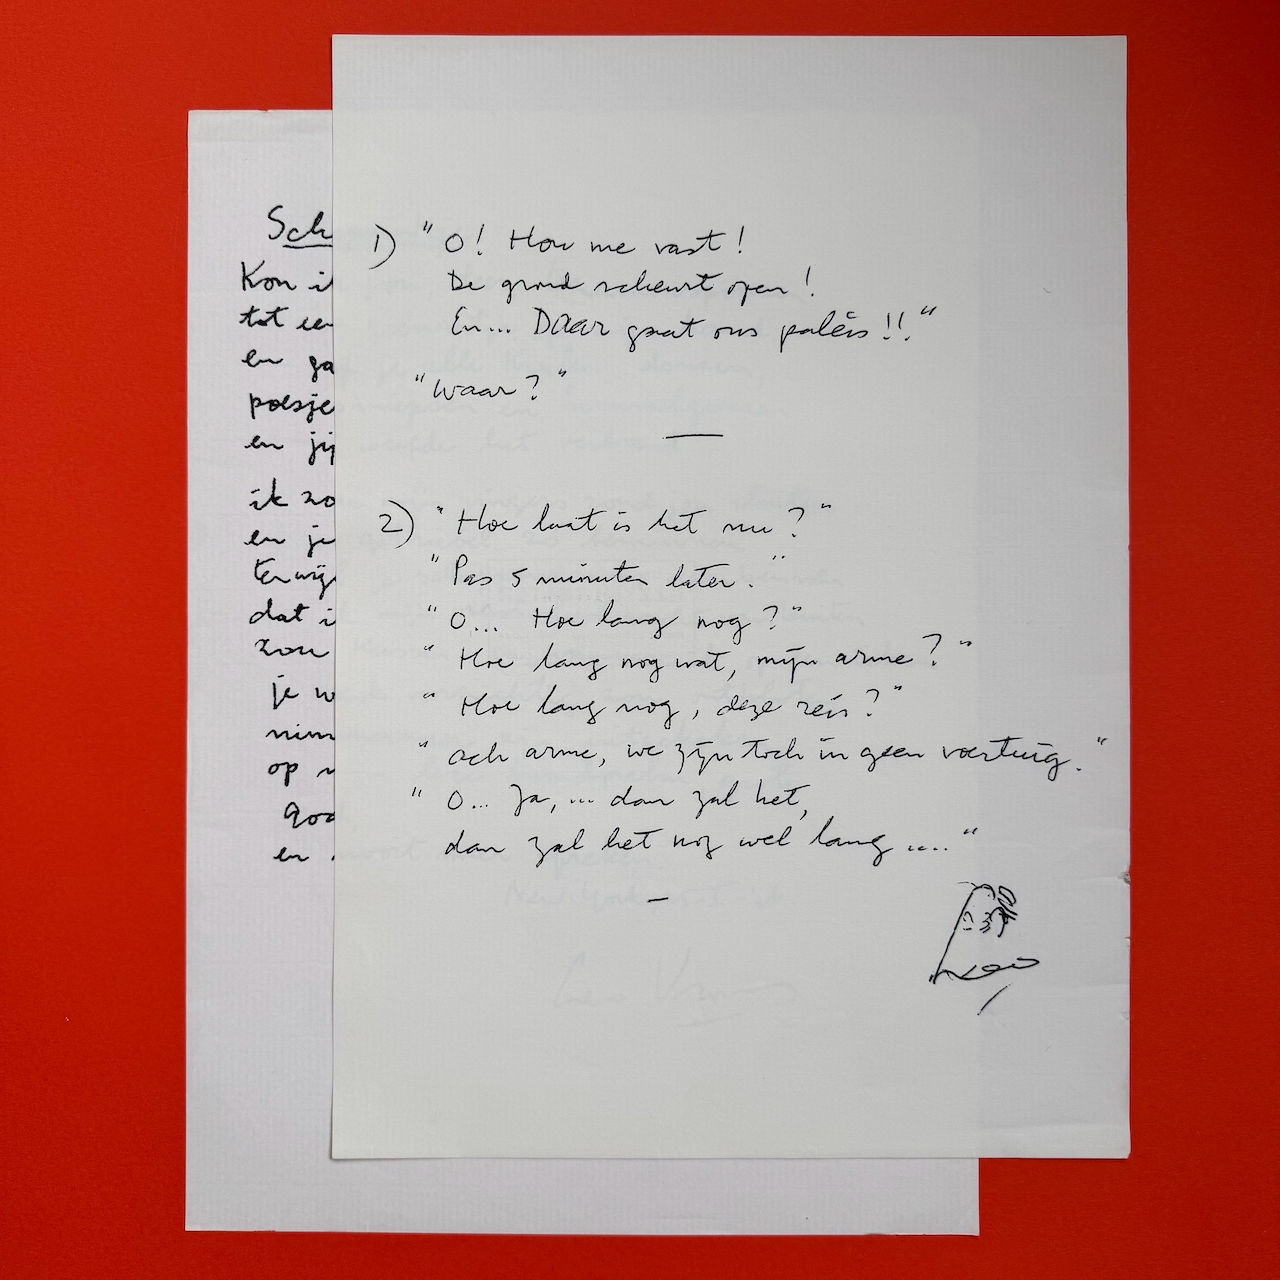 1) "O! Hou me vast!
De grond scheurt open!
En... DAAR gaat ons paleis!!"
"Waar?"
2) "Hoe laat is het nu?"
"Pas 5 minuten later."
"O... Hoe lang nog?"
"Hoe lang nog wat, mijn arme?"
"Hoe lang nog, deze reis?"
"ach arme, we zijn toch in geen voertuig."
"O... Ja, ... dan zal het,
dan zal het nog wel lang ...."
Leo
Sch
Kon i
tot een
en ga
poesje
en jij
ik zo
en je
terwij
dat i
zou
je w
nim
op
en
Leo